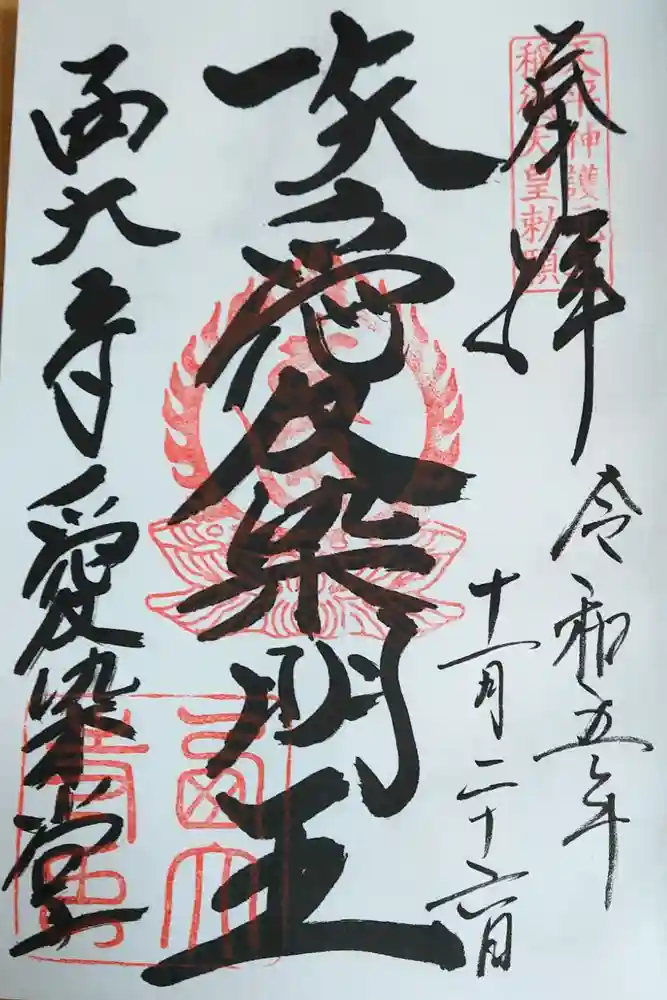 奉拝
天平神護
稱徳天皇勅願
令和五年
十一月二十六日
愛染明王
西大寺愛染堂